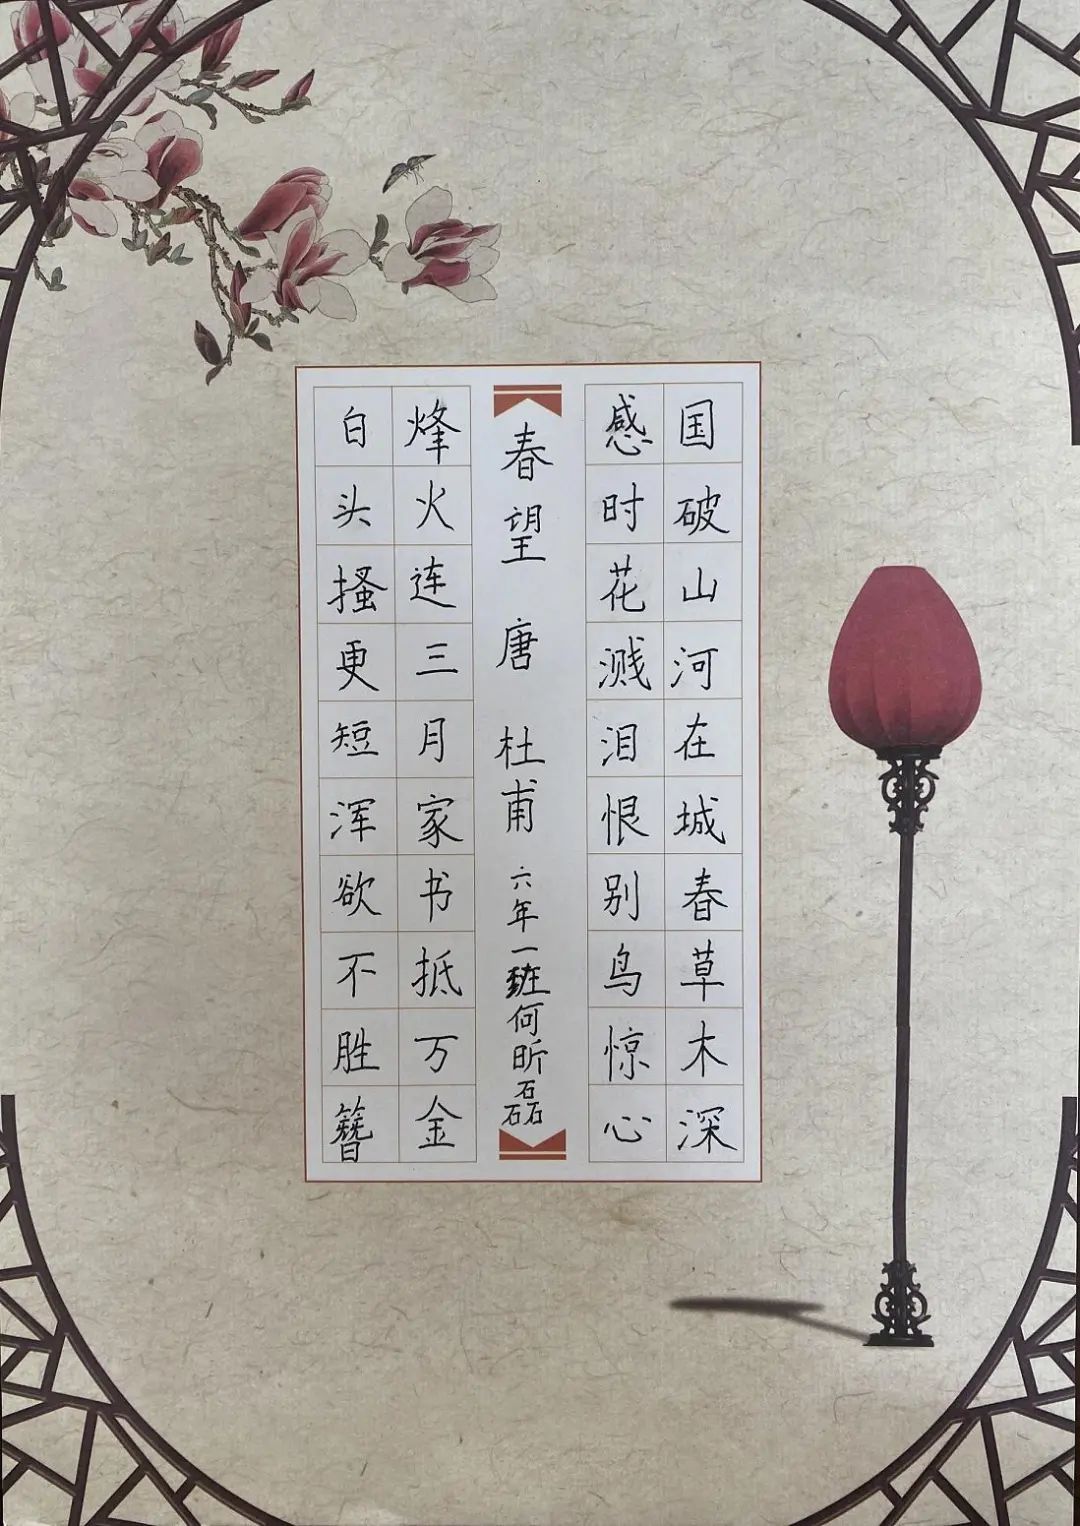 国破山河在城春草木深
感时花溅泪恨别鸟惊心
春望 唐 杜甫 六年一班何昕磊
烽火连三月家书抵万金
白头搔更短浑欲不胜簪